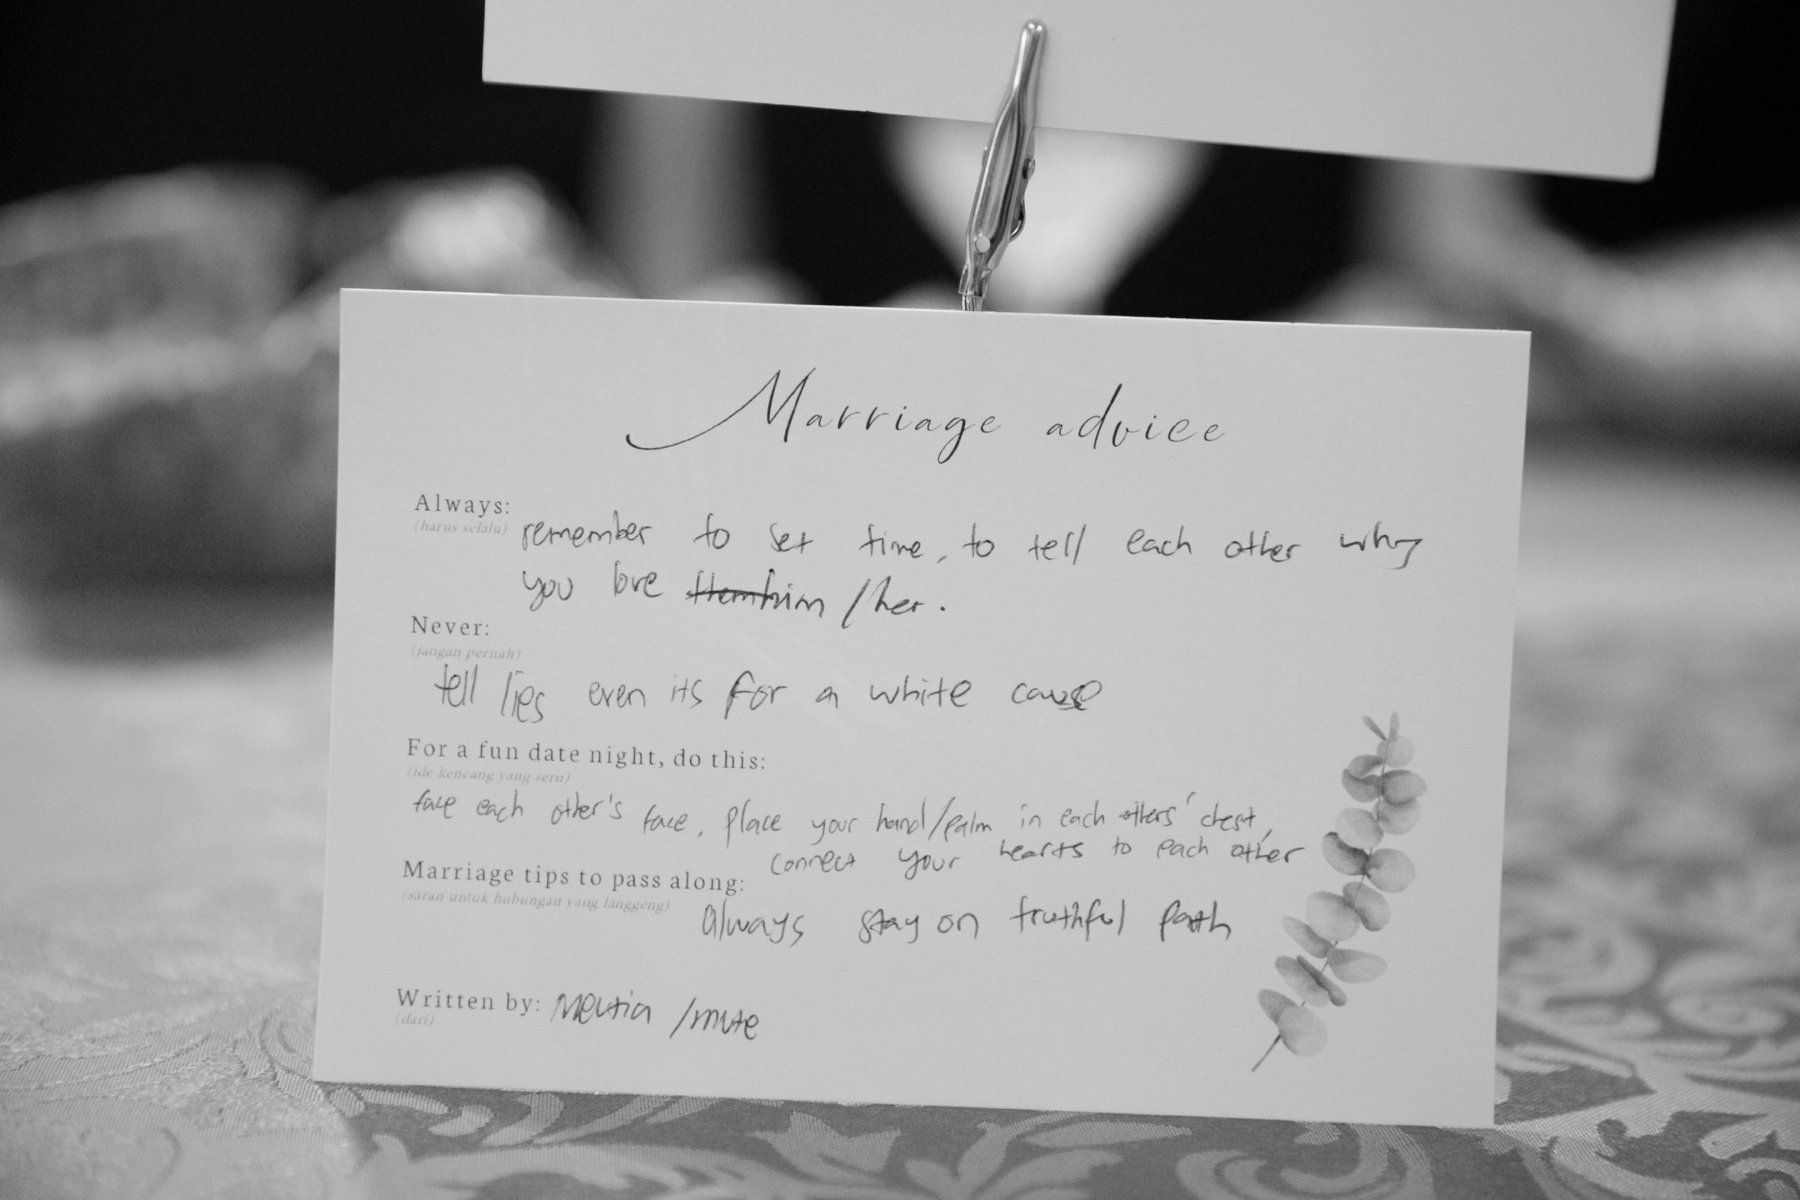 Marriage advice
Always:
(harus selalu)
remember to set time, to tell each other why
you love him /her.
Never:
(jangan pernah)
tell lies even its for a white cause
For a fun date night, do this:
(ide kencang yang seru)
face each other's face, place your hand/palm in each others' chest,
connect your hearts to each other
Marriage tips to pass along:
(saran untuk hubungan yang langgeng)
always stay on truthful path
Written by:
(dari)
/mute